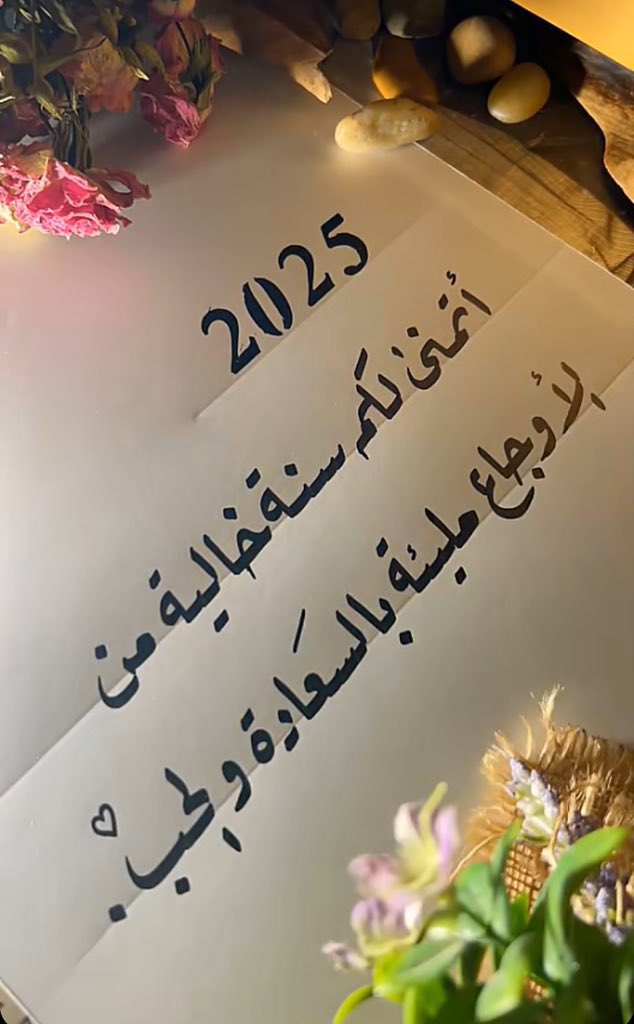 2025
أتمنىٰ لكَم سنة خالية من
الأوجاع مليئة بالسعَادة والحب.